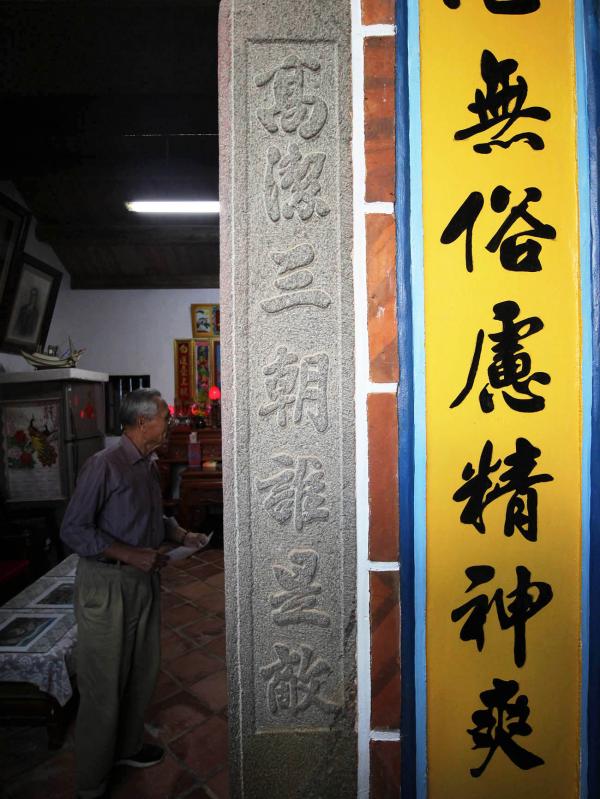 無俗慮精神爽
高潔三朝誰是敵